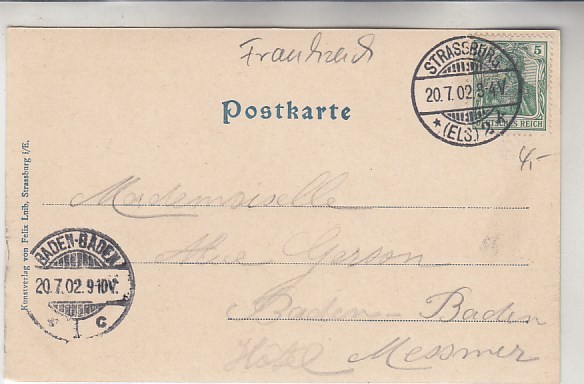 Frankreich
Postkarte
5
DEUTSCHES REICH
STRASSBURG
20.7.02.3-4V.
* (ELS.) 2 k
4,-
Mademoiselle
Garson
Baden-Baden
Hôtel Messmer
BADEN-BADEN
20.7.02.9-10V.
* 1 c
Kunstverlag von Felix Luib, Strassburg i/E.